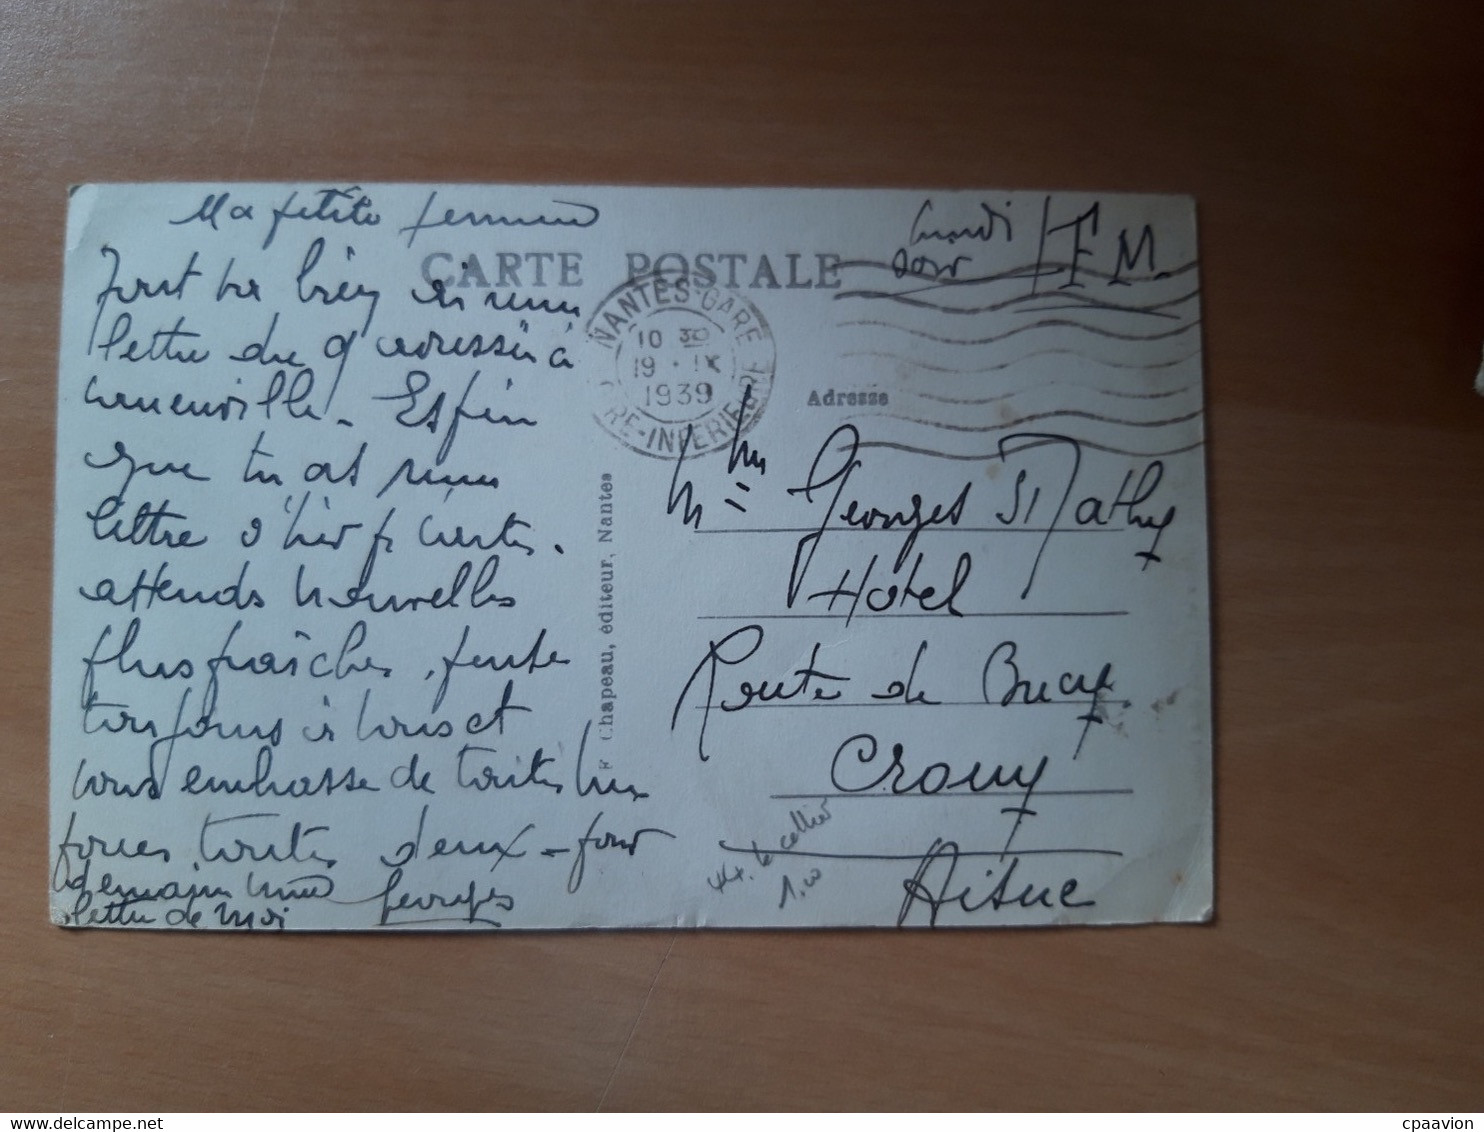 Ma petite femme
Tout va bien ai reçu
lettre du 9 adressée à
Espère
que tu as reçu
lettre d'hier
attends nouvelles
plus fraîches, pense
toujours à vous et
vous embrasse de toutes mes
forces toutes deux - pour
demain une
lettre de moi
Georges
CARTE POSTALE
lundi
soir
F M.
NANTES-GARE
10 30
19 · IX
1939
RE-INFERIEURE
Adresse
F. Chapeau, éditeur, Nantes
Mme Georges Mathy
Hôtel
Route de Bucy
Crouy
Aisne
44. le cellier
1.00
cpaavion